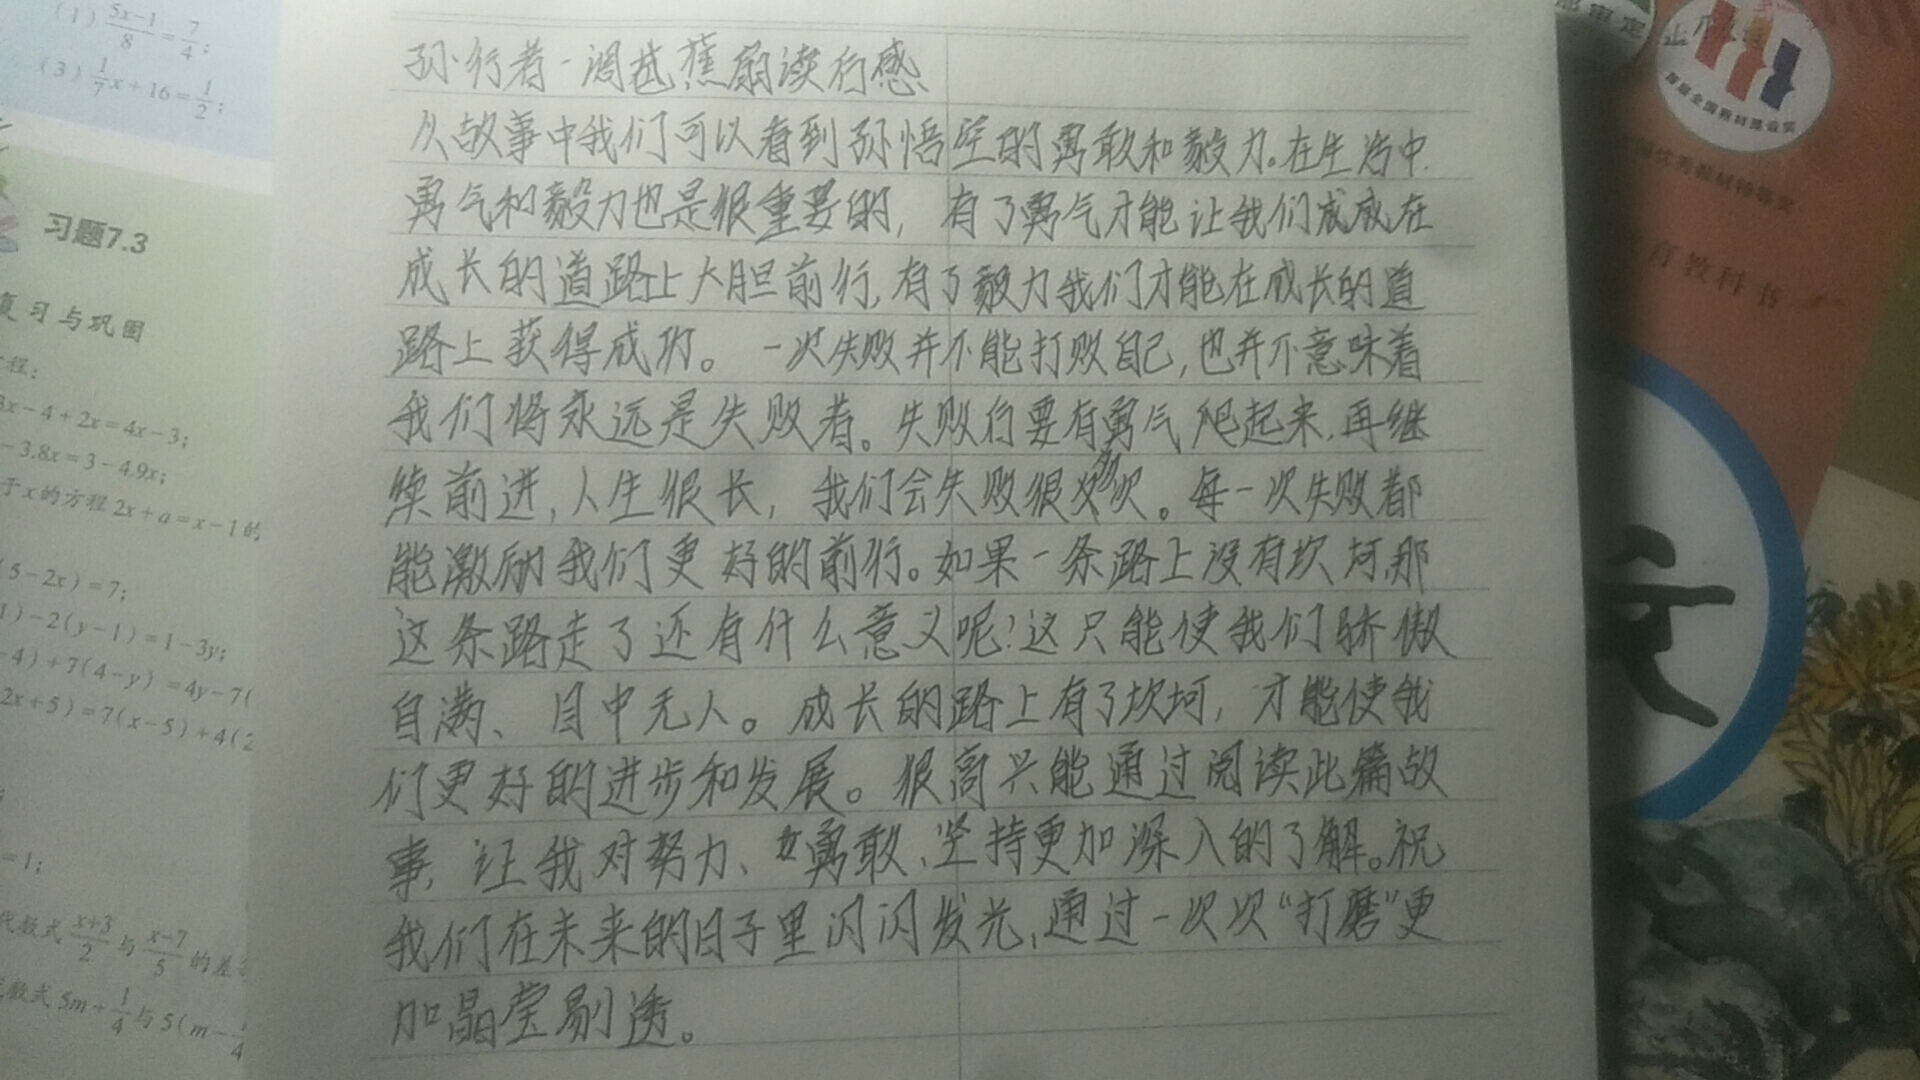 孙行者一调芭蕉扇读后感
从故事中我们可以看到孙悟空的勇敢和毅力。在生活中
勇气和毅力也是很重要的，有了勇气才能让我们成成在
成长的道路上大胆前行，有了毅力我们才能在成长的道
路上获得成功。一次失败并不能打败自己，也并不意味着
我们将永远是失败者。失败后要有勇气爬起来，再继
续前进，人生很长，我们会失败很多次。每一次失败都
能激励我们更好的前行。如果一条路上没有坎坷，那
这条路走了还有什么意义呢？这只能使我们骄傲
自满、目中无人。成长的路上有了坎坷，才能使我
们更好的进步和发展。很高兴能通过阅读此篇故
事，让我对努力、勇敢、坚持更加深入的了解。祝
我们在未来的日子里闪闪发光，通过一次次“打磨”更
加晶莹剔透。
(1) (5x-1)/8=7/4;
(3) 1/7x+16=1/2;
习题7.3
复习与巩固
程：
3x-4+2x=4x-3;
-3.8x=3-4.9x;
于x的方程2x+a=x-1的
(5-2x)=7;
1)-2(y-1)=1-3y;
-4)+7(4-y)=4y-7(
2x+5)=7(x-5)+4(2
=1;
代数式(x+3)/2与(x-7)/5的差
数式5m+1/4与5(m-1/4
审定
首届全国教材建设奖
优秀教材特等奖
育教科书
文